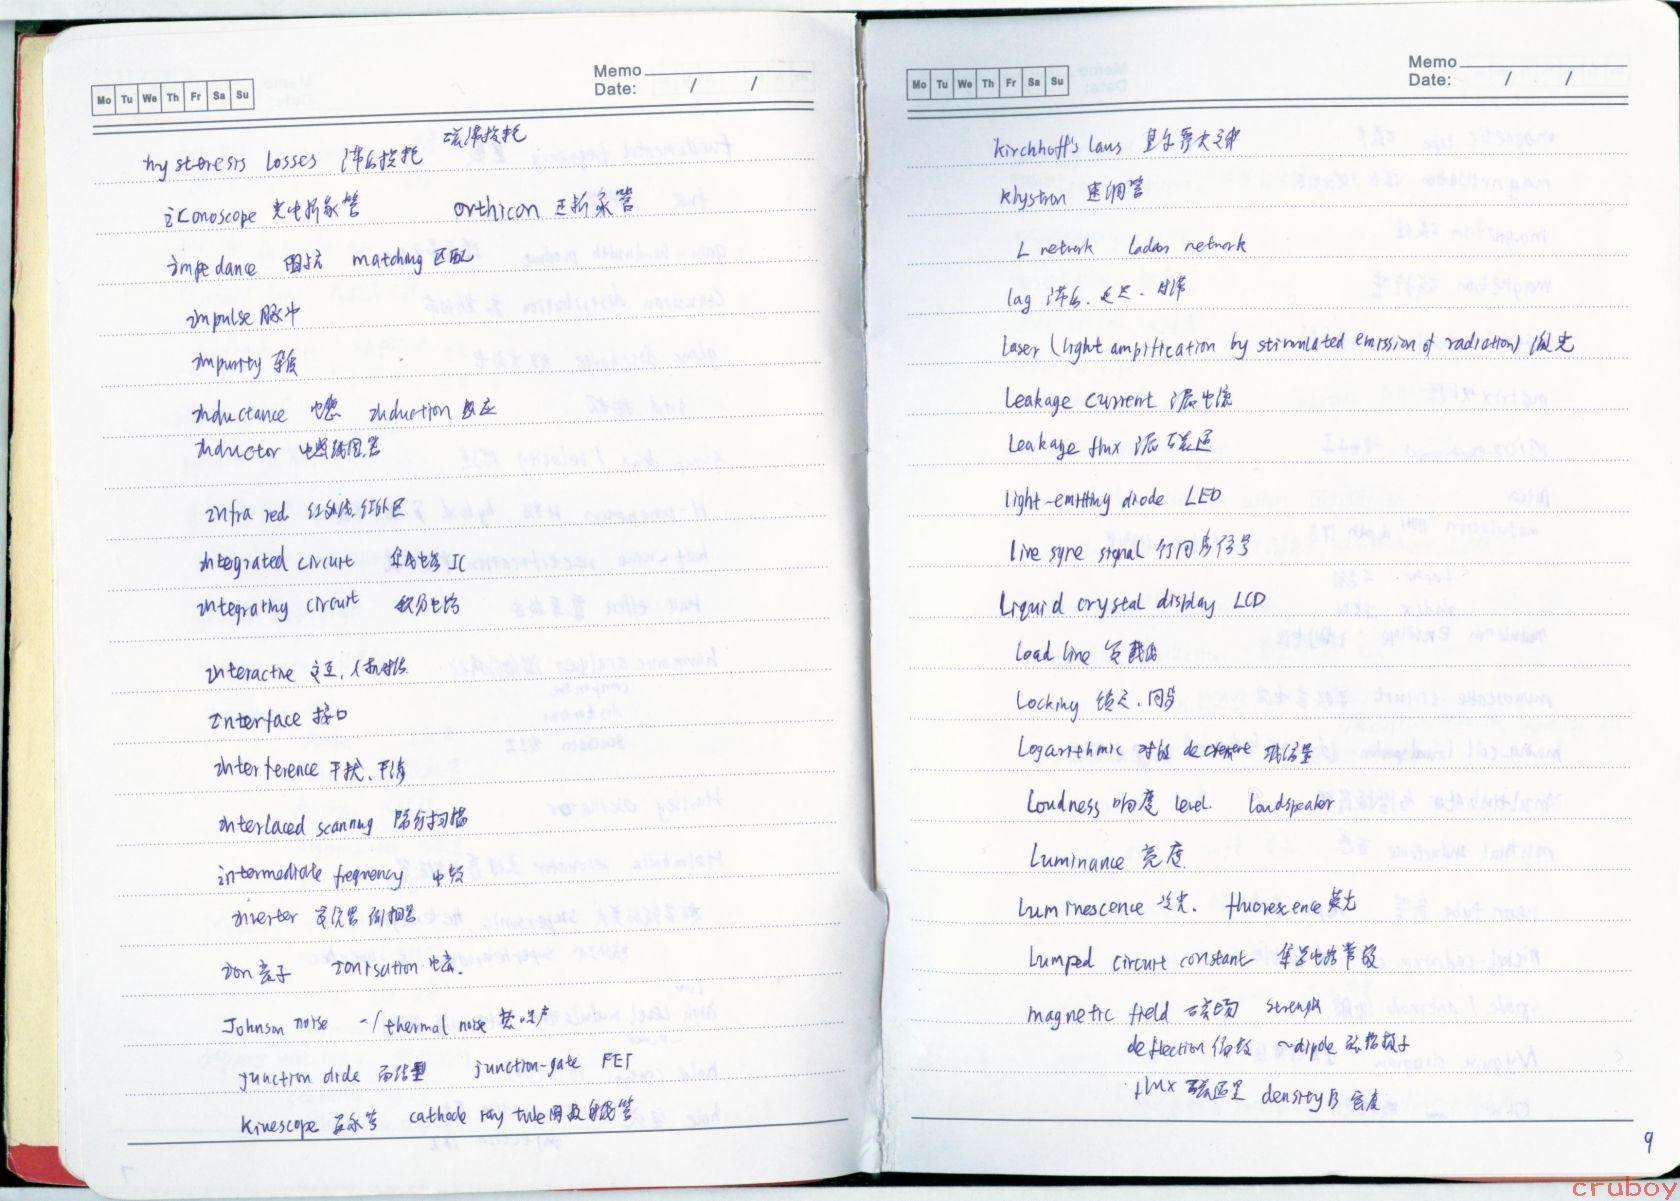 Mo Tu We Th Fr Sa Su
Memo
Date: / /
磁滞损耗
hysteresis losses 滞后损耗
iconoscope 光电析象管 orthicon 正析象管
impedance 阻抗 matching 匹配
impulse 脉冲
impurity 杂质
inductance 电感 induction 感应
inductor 电感线圈
infra red 红外线.红外区
integrated circuit 集成电路 IC
integrating circuit 积分电路
interactive 交互.人机对话
interface 接口
interference 干扰.干涉
interlaced scanning 隔行扫描
intermediate frequency 中频
inverter 变换器 倒相器
ion 离子 ionisation 电离.
Johnson noise ~/thermal noise 热噪声
junction diode 面结型 junction-gate FET
kinescope 显象管 cathode ray tube 阴极射线管
Mo Tu We Th Fr Sa Su
Memo
Date: / /
Kirchhoff's laws 基尔霍夫定律
Klystron 速调管
L network ladder network
lag 滞后.延迟.
Laser (light amplification by stimulated emission of radiation) 激光
Leakage current 漏电流
Leakage flux 漏磁通
light-emitting diode LED
line sync signal 行同步信号
Liquid crystal display LCD
Load line 负载线
Locking 锁定.同步
Logarithmic 对数 decrement 减缩量
Loudness 响度 level. loudspeaker
Luminance 亮度
Luminescence 发光. fluorescence 荧光
Lumped circuit constant 集总电路常数
magnetic field 磁场 strength
deflection 偏转 ~dipole 磁偶极子
flux 磁通量 density B 密度
9
cruboy